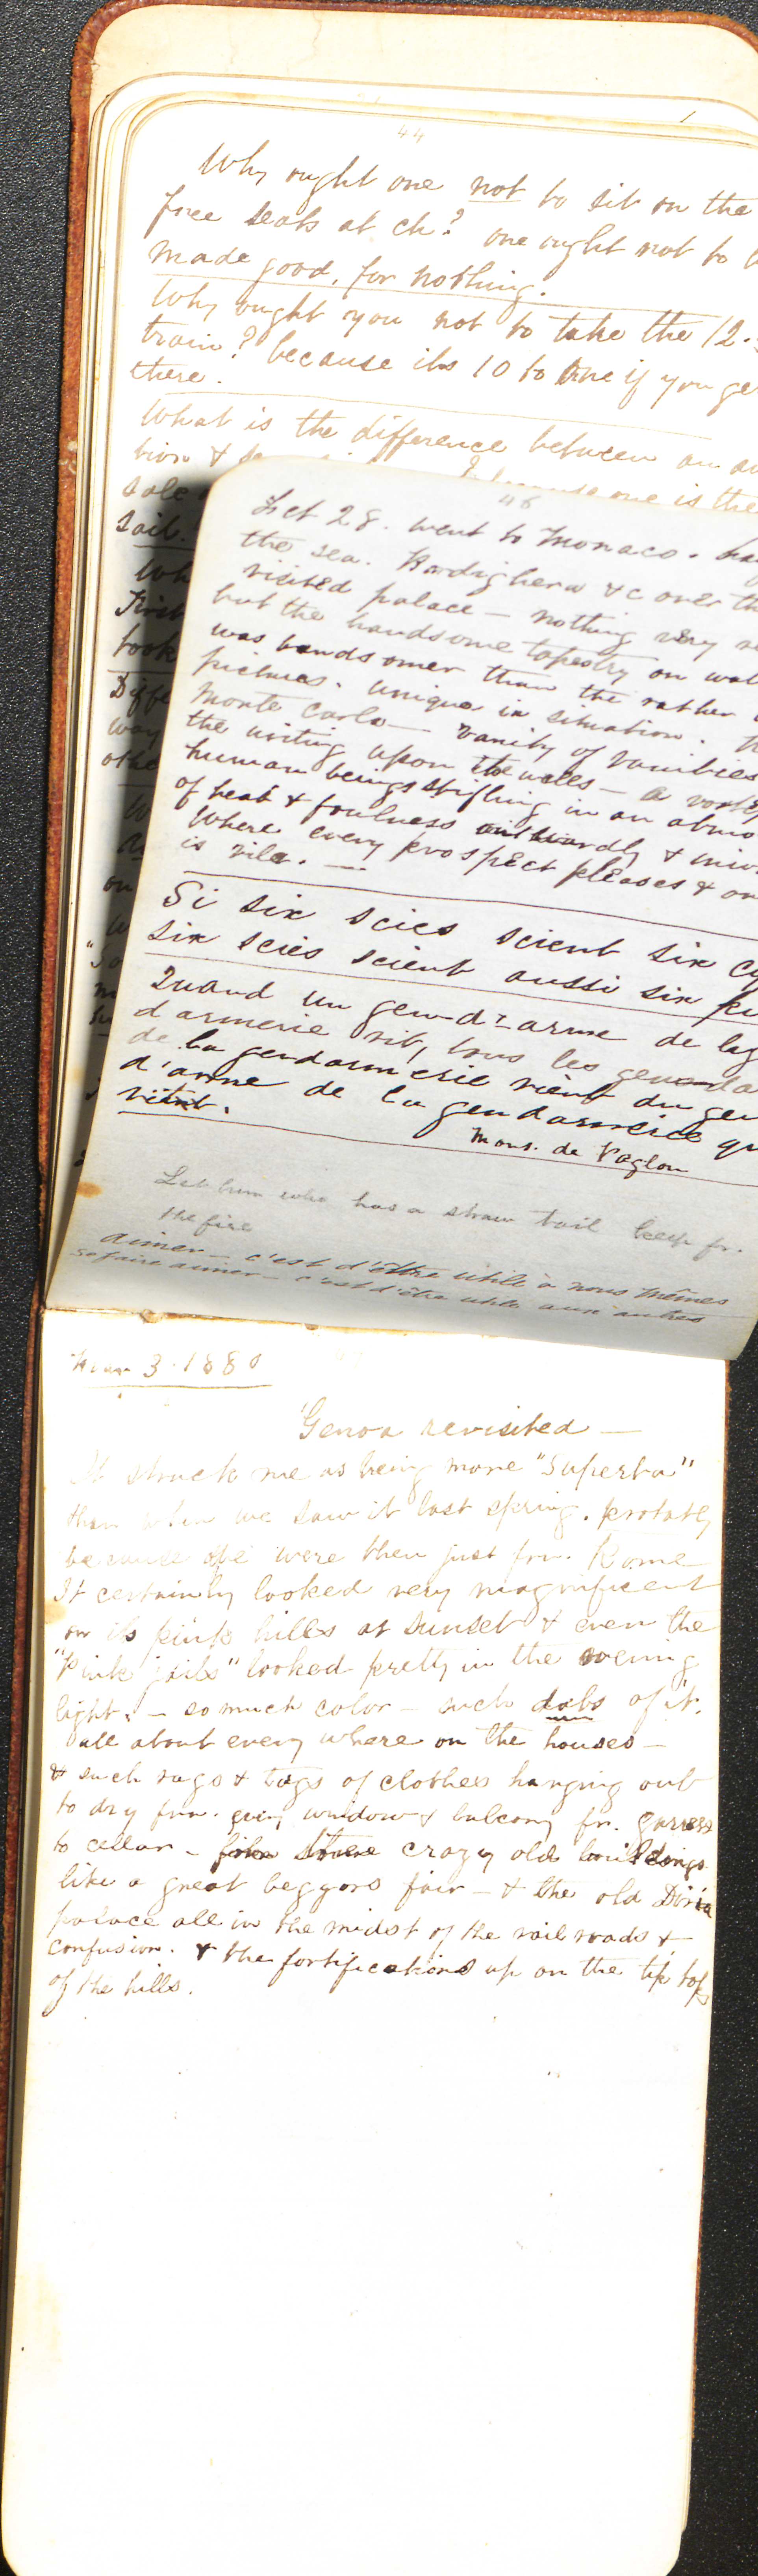 44
Why ought one not to sit on the
free seats at ch? one ought not to
made good, for nothing.
Why ought you not to take the 12.
train? because its 10 to one if you ge
there.
What is the difference between an au
tion & one is the
sale
sail.
Wh
First
took
Diffe
way
othe
on
46
28. went to Monaco.
the sea. Bordighera &c over th
visited palace — nothing very re
but the handsome tapestry on wal
was handsomer than the rather
pictures. unique in situation.
Monte Carlo — Vanity of Vanities
the writing upon the walls — a vortex
human beings stifling in an atmo
of heat & foulness outwardly & inw
Where every prospect pleases & on
is vile. —
Si six scies scient six cy
six scies scient aussi six
Quand un gen-d'-arme de la g
d'armerie rit, tous les gen-da
de la gendarmerie rient du gen
d'arme de la gendarmerie qu
Mons. de
Let him who has a straw tail keep fr.
the fire
aimer — c'est d'être utile à nous mêmes
se faire aimer — c'est d'être utile aux autres
3. 1880
Genoa revisited —
It struck me as being more "Superba"
than when we saw it last spring. probably
because we were then just fm. Rome
It certainly looked very magnificent
on its pink hills at sunset & even the
"Pink jails" looked pretty in the evening
light. — so much color — such dabs of it.
all about every where on the houses —
& such rags & tags of clothes hanging out
to dry fm. every window & balcony fr. garret
to cellar — crazy old buildings
like a great beggars fair — & the old Doria
palace all in the midst of the railroads &
confusion. & the fortifications up on the tip tops
of the hills.